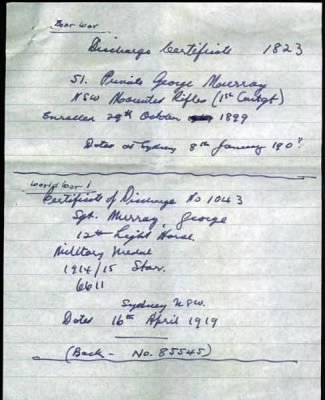 Boer War
Discharge Certificate 1823
51. Private George Mourray
NSW Mounted Rifles (1st Contgt)
Enrolled 29th October 1899
Dates at Sydney 8th January 190?
World War 1
Certificate of Discharge No 1043
Sgt. Murray George
12th Light Horse.
Military Medal
1914/15 Star.
6611
Sydney NSW.
Dates 16th April 1919
(Back - No. 85545)